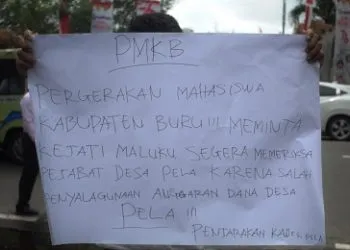 PMKB
PERGERAKAN MAHASISWA
KABUPATEN BURU !!! MEMINTA
KEJATI MALUKU SEGERA MEMERIKSA
PEJABAT DESA PELA KARENA SALAH
PENYALAGUNAAN ANGGARAN DANA DESA
PELA !!!